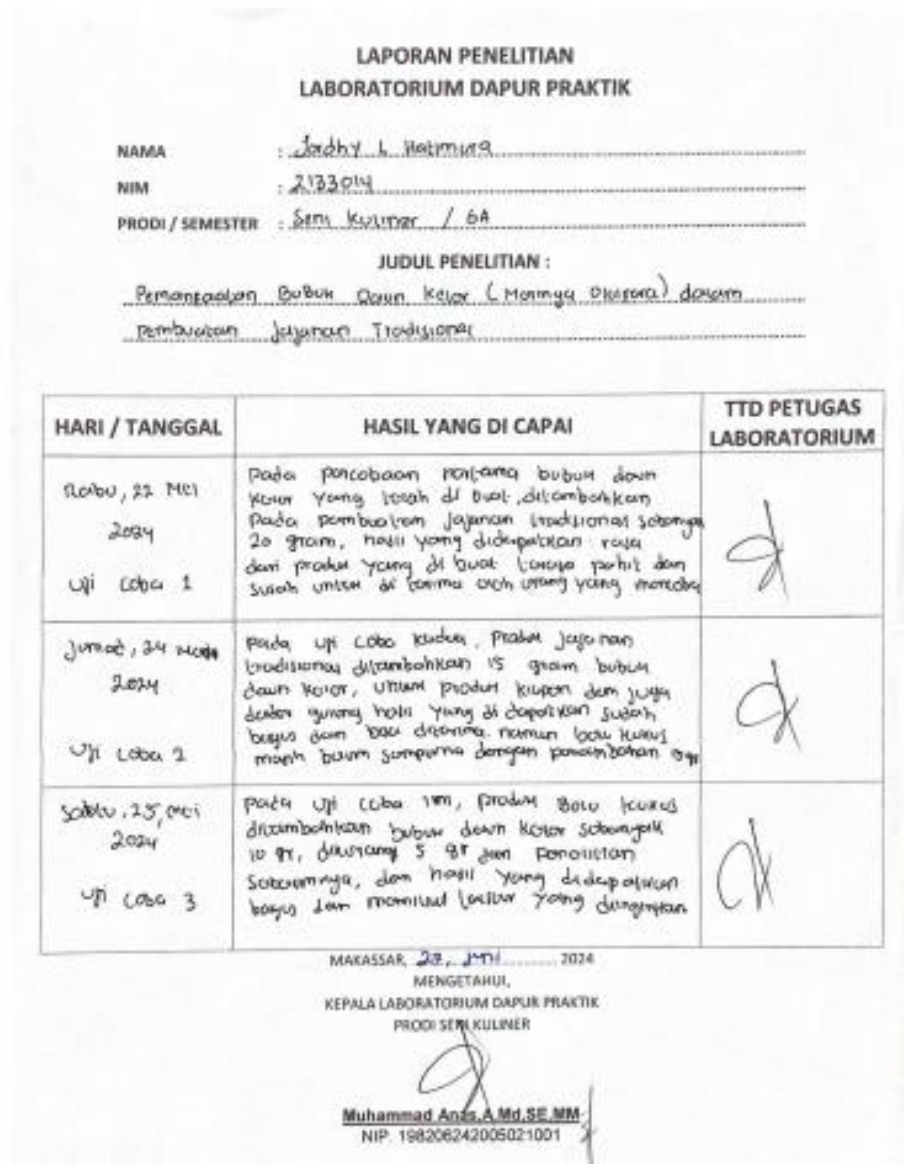 LAPORAN PENELITIAN
LABORATORIUM DAPUR PRAKTIK
NAMA : Jordhy L Hatmura
NIM : 2133014
PRODI / SEMESTER : Seni Kuliner / 6A
JUDUL PENELITIAN :
Pemanfaatan Bubuk Daun Kelor ( Moringa Oleifera) dalam
pembuatan Jajanan Tradisional
HARI / TANGGAL
HASIL YANG DI CAPAI
TTD PETUGAS
LABORATORIUM
Rabu, 22 Mei
2024
Uji Coba 1
Pada percobaan pertama bubuk daun
kelor yang telah di buat, ditambahkan
Pada pembuatan jajanan tradisional sebanyak
20 gram, hasil yang didapatkan rasa
dari produk yang di buat terasa pahit dan
susah untuk di terima oleh orang yang mencoba
Jumat, 24
2024
Uji Coba 2
pada uji coba kedua, produk jajanan
tradisional ditambahkan 15 gram bubuk
daun kelor, untuk produk klepon dan juga
dadar gulung hasil yang di dapatkan sudah
bagus dan bisa diterima. namun bolu kukus
masih belum sempurna dengan penambahan 15gr
Sabtu, 25, Mei
2024
Uji Coba 3
pada uji coba ini, produk Bolu kukus
ditambahkan bubuk daun kelor sebanyak
10 gr, dikurangi 5 gr dari Penelitian
Sebelumnya, dan hasil yang didapatkan
bagus dan memiliki tekstur yang diinginkan
MAKASSAR, 27, 2024
MENGETAHUI,
KEPALA LABORATORIUM DAPUR PRAKTIK
PRODI SENI KULINER
Muhammad Anas,A.Md,SE,MM
NIP. 198206242005021001